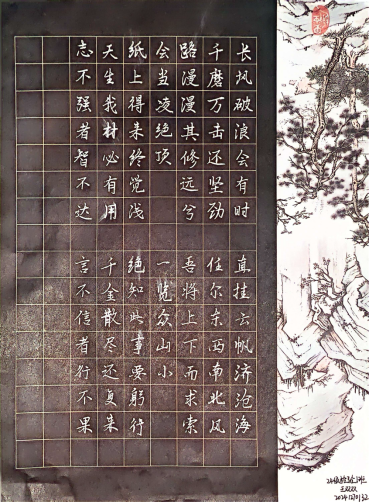 长风破浪会有时 直挂云帆济沧海
千磨万击还坚劲 任尔东西南北风
路漫漫其修远兮 吾将上下而求索
会当凌绝顶 一览众山小
纸上得来终觉浅 绝知此事要躬行
天生我材必有用 千金散尽还复来
志不强者智不达 言不信者行不果